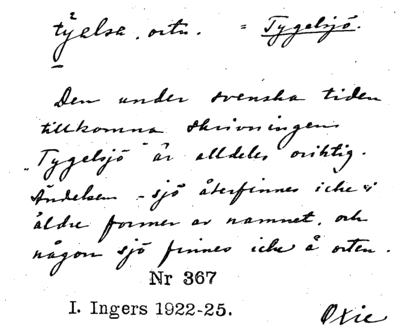 tyelsa, ortn. = Tygelsjö.
Den under svenska tiden
tillkomna skrivningen
"Tygelsjö" är alldeles oriktig.
Ändelsen -sjö återfinnes icke i
äldre former av namnet, och
någon sjö finnes icke å orten.
Nr 367
I. Ingers 1922-25.
Oxie